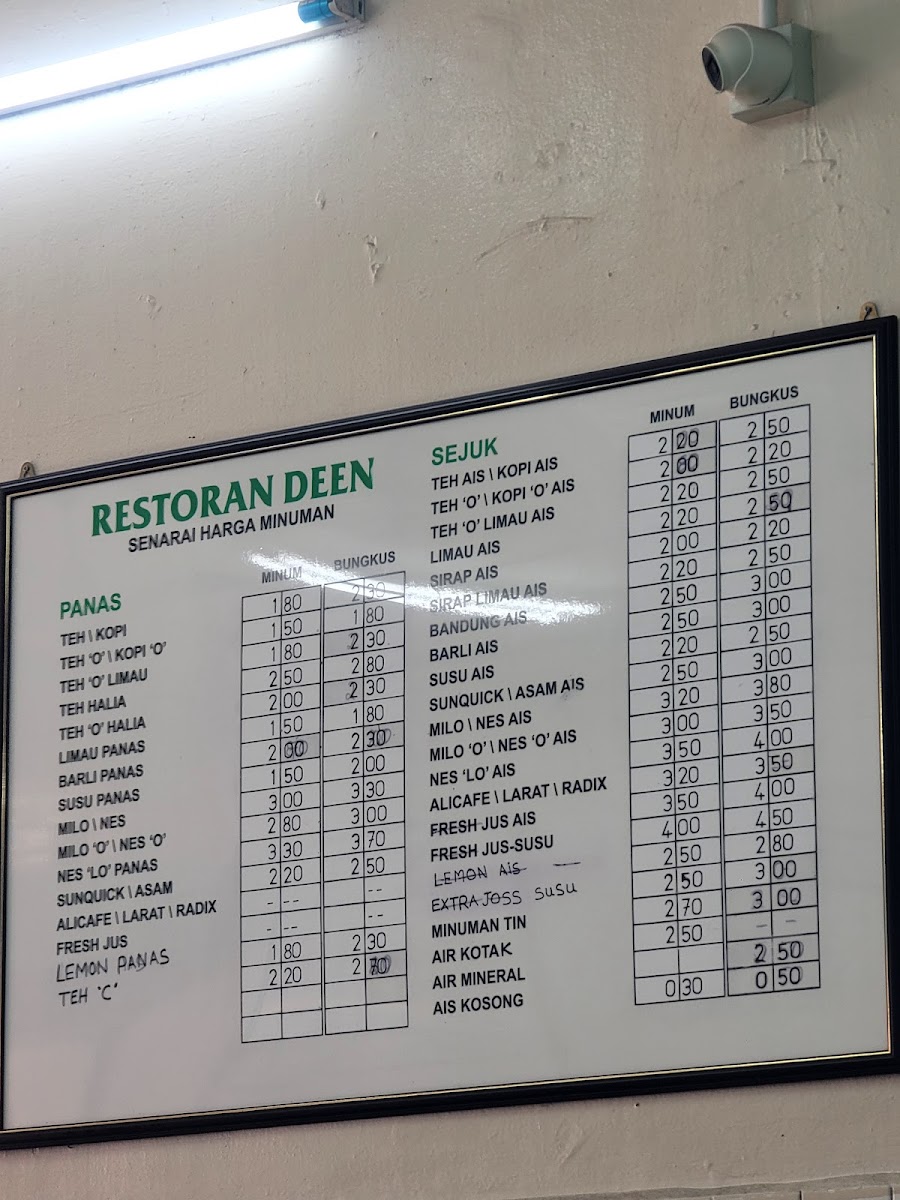 RESTORAN DEEN
SENARAI HARGA MINUMAN
PANAS MINUM BUNGKUS
TEH \ KOPI 1 80 2 30
TEH 'O' \ KOPI 'O' 1 50 1 80
TEH 'O' LIMAU 1 80 2 30
TEH HALIA 2 50 2 80
TEH 'O' HALIA 2 00 2 30
LIMAU PANAS 1 50 1 80
BARLI PANAS 2 00 2 30
SUSU PANAS 1 50 2 00
MILO \ NES 3 00 3 30
MILO 'O' \ NES 'O' 2 80 3 00
NES 'LO' PANAS 3 30 3 70
SUNQUICK \ ASAM 2 20 2 50
ALICAFE \ LARAT \ RADIX - -- --
FRESH JUS - -- --
LEMON PANAS 1 80 2 30
TEH 'C' 2 20 2 70
SEJUK MINUM BUNGKUS
TEH AIS \ KOPI AIS 2 20 2 50
TEH 'O' \ KOPI 'O' AIS 2 00 2 20
TEH 'O' LIMAU AIS 2 20 2 50
LIMAU AIS 2 20 2 50
SIRAP AIS 2 00 2 20
SIRAP LIMAU AIS 2 20 2 50
BANDUNG AIS 2 50 3 00
BARLI AIS 2 50 3 00
SUSU AIS 2 20 2 50
SUNQUICK \ ASAM AIS 2 50 3 00
MILO \ NES AIS 3 20 3 80
MILO 'O' \ NES 'O' AIS 3 00 3 50
NES 'LO' AIS 3 50 4 00
ALICAFE \ LARAT \ RADIX 3 20 3 50
FRESH JUS AIS 3 50 4 00
FRESH JUS-SUSU 4 00 4 50
LEMON AIS 2 50 2 80
EXTRA JOSS SUSU 2 50 3 00
MINUMAN TIN 2 70 3 00
AIR KOTAK 2 50 - -
AIR MINERAL 2 50
AIS KOSONG 0 30 0 50